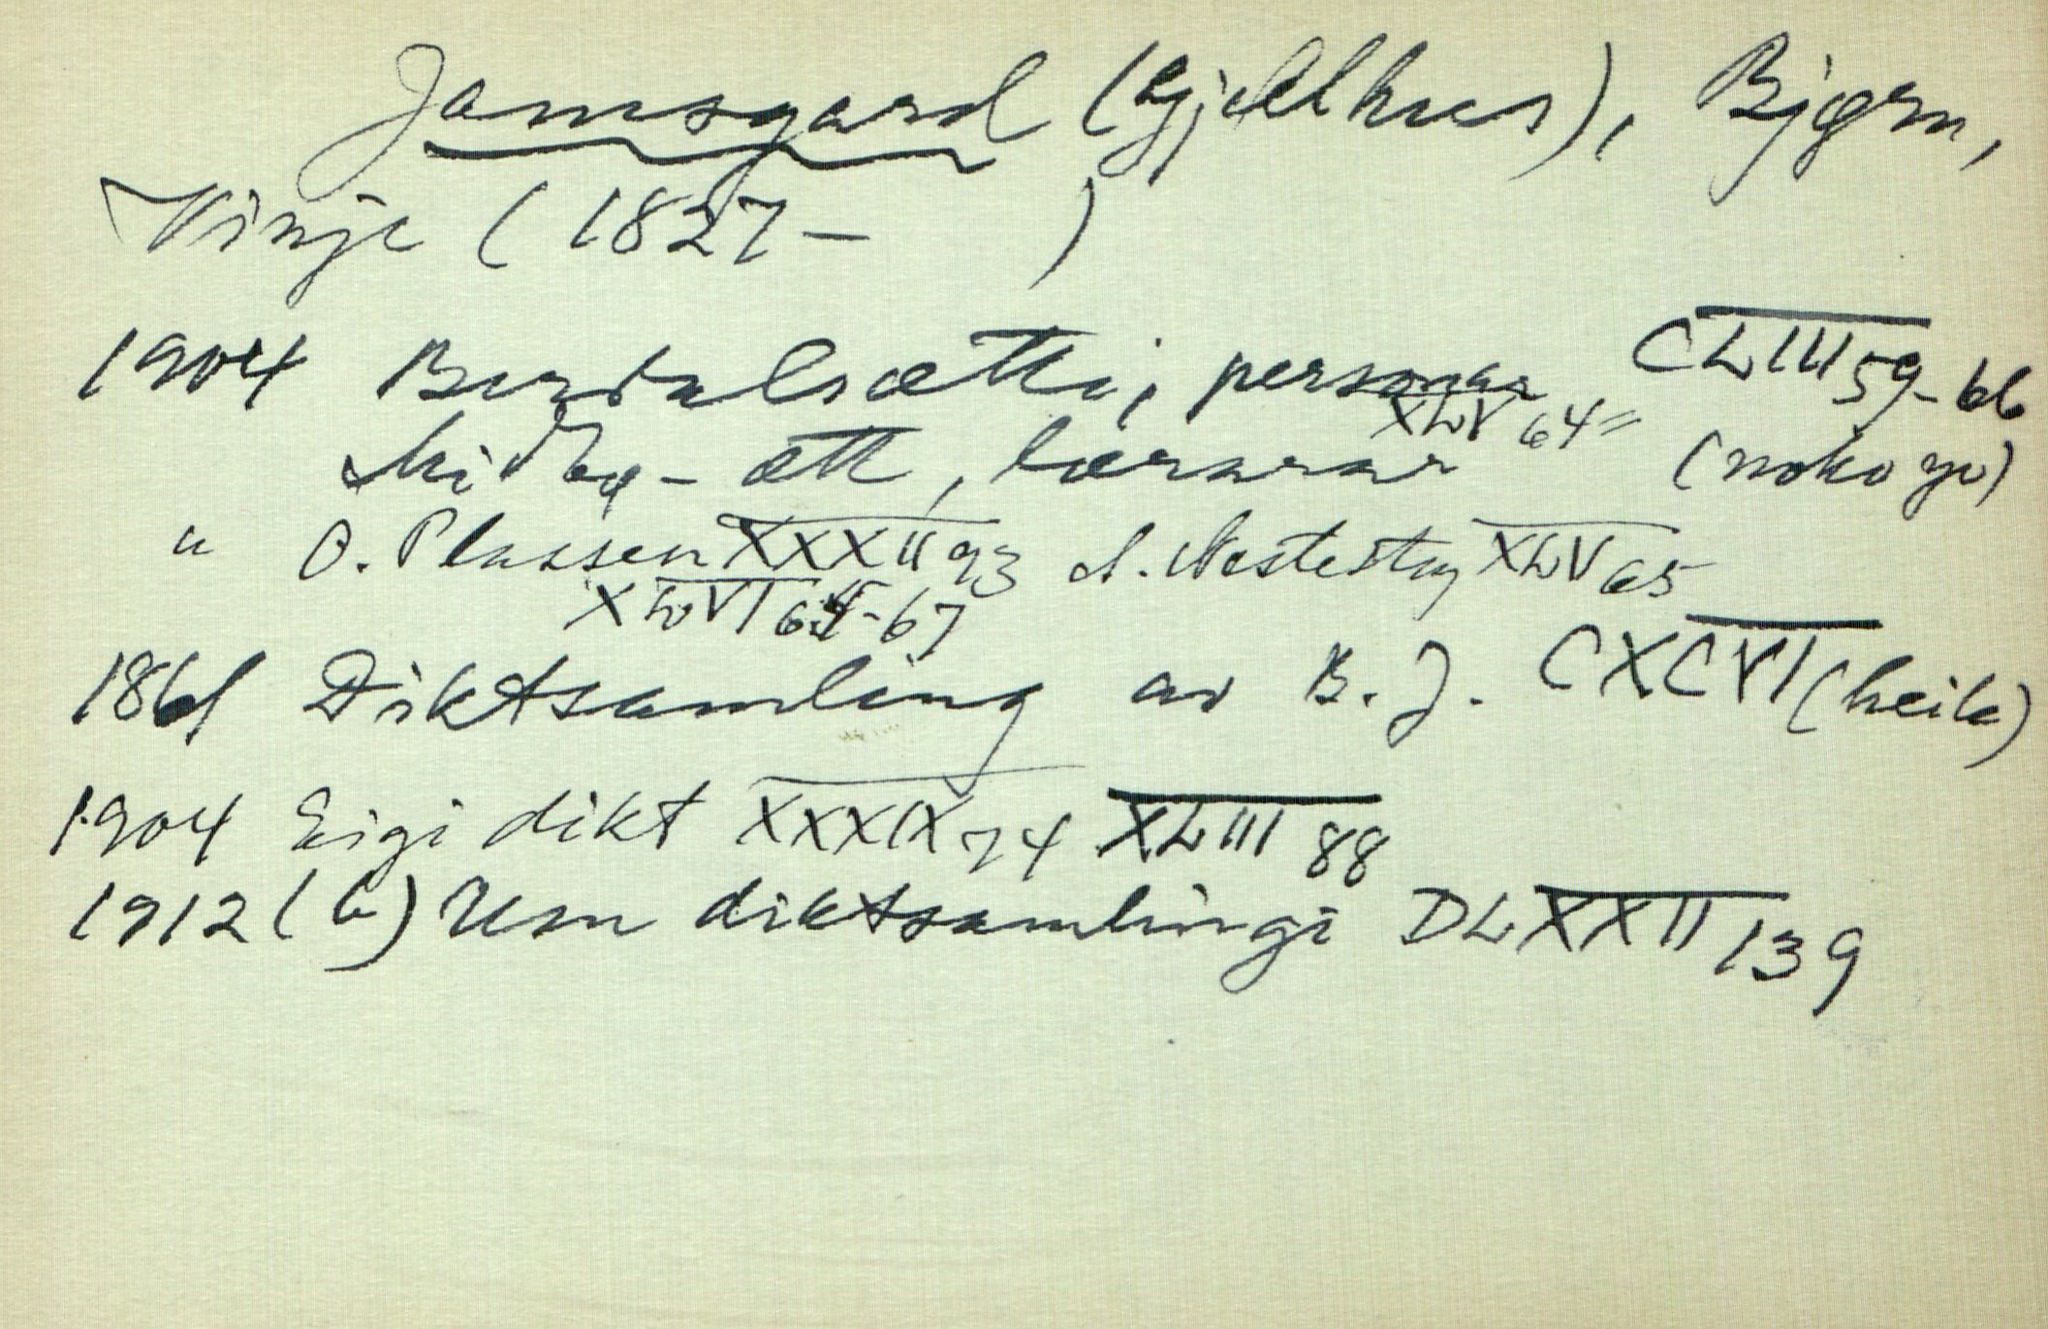 Jamsgard (Gjelhus), Bjørn,
Vinje (1827- )
1904 Burdalsætti, personar CLIII 59-66
ætt, lærarar XLV 64 (noko yv)
" O. Plassen XXXII 93 XLV 65
XLVI 64-67
1861 Diktsamling av B. J. CXCVI (heile)
1904 Eigi dikt XXXIX 74 XLIII 88
1912 (b) Um diktsamlingi DLXXII 139